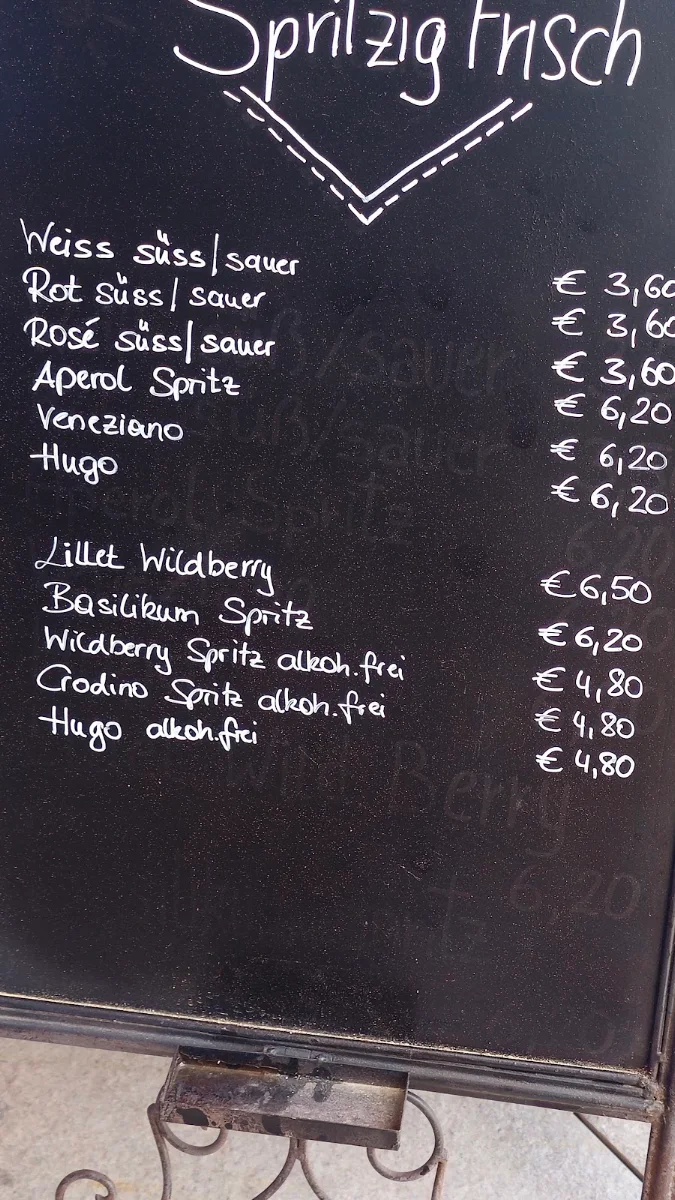 Spritzig Frisch
Weiss süss/sauer € 3,60
Rot süss/sauer € 3,60
Rosé süss/sauer € 3,60
Aperol Spritz € 6,20
Veneziano € 6,20
Hugo € 6,20
Lillet Wildberry € 6,50
Basilikum Spritz € 6,20
Wildberry Spritz alkoh.frei € 4,80
Crodino Spritz alkoh.frei € 4,80
Hugo alkoh.frei € 4,80